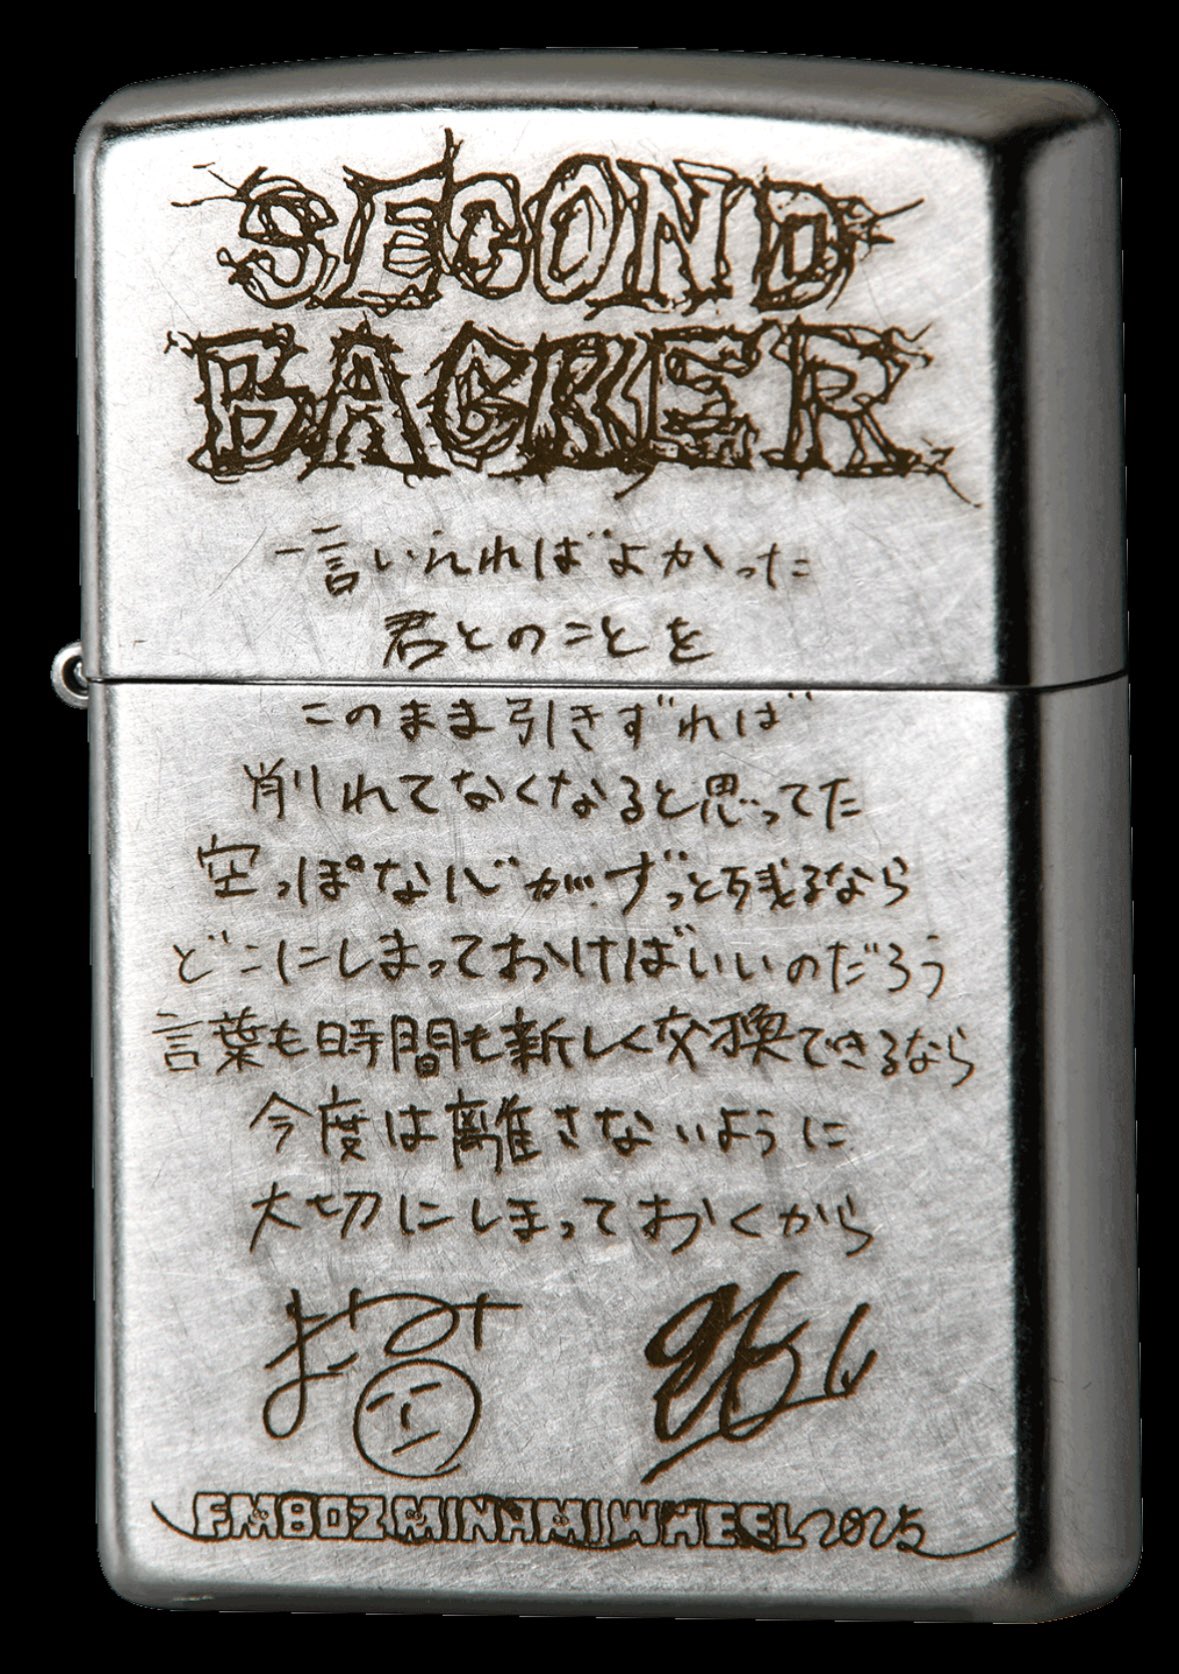 SECOND
BACKER
一言いえればよかった
君とのことを
このまま引きずれば
削れてなくなると思ってた
空っぽな心がずっと残るなら
どこにしまっておけばいいのだろう
言葉も時間も新しく交換できるなら
今度は離さないように
大切にしまっておくから
FM802 MINAMI WHEEL 2025